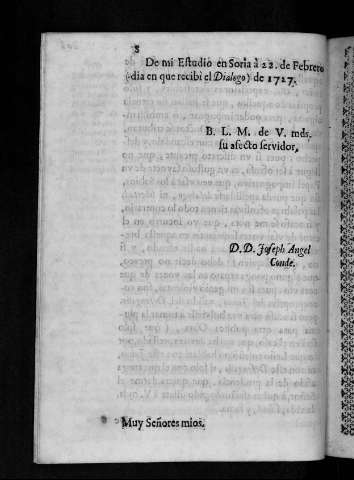 8
De mi Estudio en Soria à 22. de Febrero
(dia en que recibi el Dialogo) de 1727.
B. L. M. de V. mds.
su afecto servidor,
D. D. Joseph Angel
Conde.
Muy Señores mios.